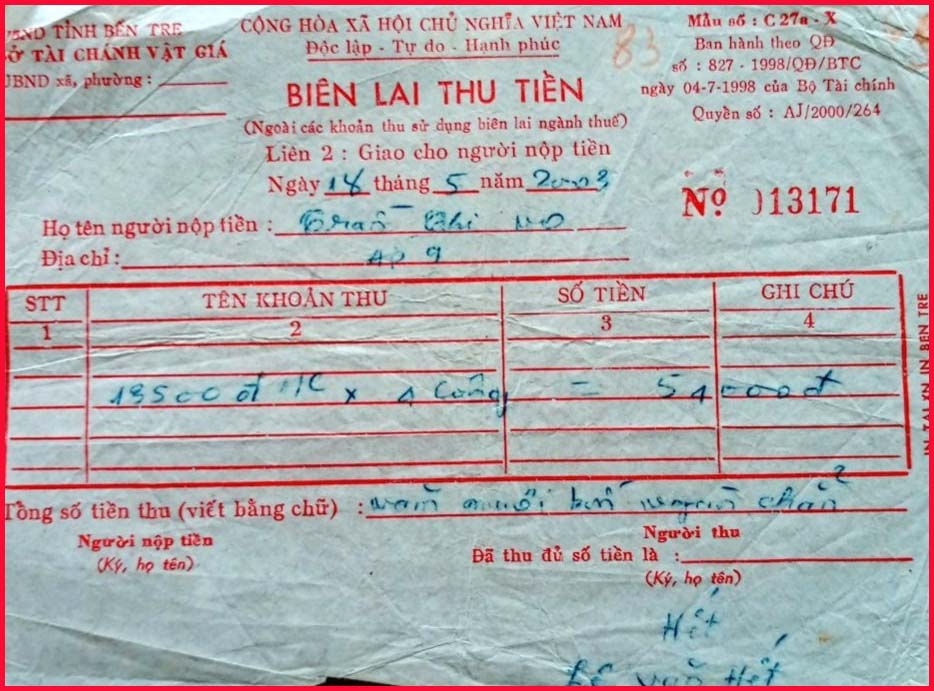 UBND TỈNH BẾN TRE
SỞ TÀI CHÁNH VẬT GIÁ
UBND xã, phường :
CỘNG HÒA XÃ HỘI CHỦ NGHĨA VIỆT NAM
Độc lập - Tự do - Hạnh phúc
83
Mẫu số : C 27a - X
Ban hành theo QĐ
số : 827 - 1998/QĐ/BTC
ngày 04-7-1998 của Bộ Tài chính
Quyển số : AJ/2000/264
BIÊN LAI THU TIỀN
(Ngoài các khoản thu sử dụng biên lai ngành thuế)
Liên 2 : Giao cho người nộp tiền
Ngày 14 tháng 5 năm 2003
Nº 013171
Họ tên người nộp tiền : Trần Thị
Địa chỉ : Ấp 9
STT TÊN KHOẢN THU SỐ TIỀN GHI CHÚ
1 2 3 4
13500đ HC x 4 công = 54000đ
Tổng số tiền thu (viết bằng chữ) : năm mươi bốn ngàn chẵn
Người nộp tiền
(Ký, họ tên)
Người thu
Đã thu đủ số tiền là :
(Ký, họ tên)
Hết
Lê văn Hết
IN TẠI XN IN BẾN TRE